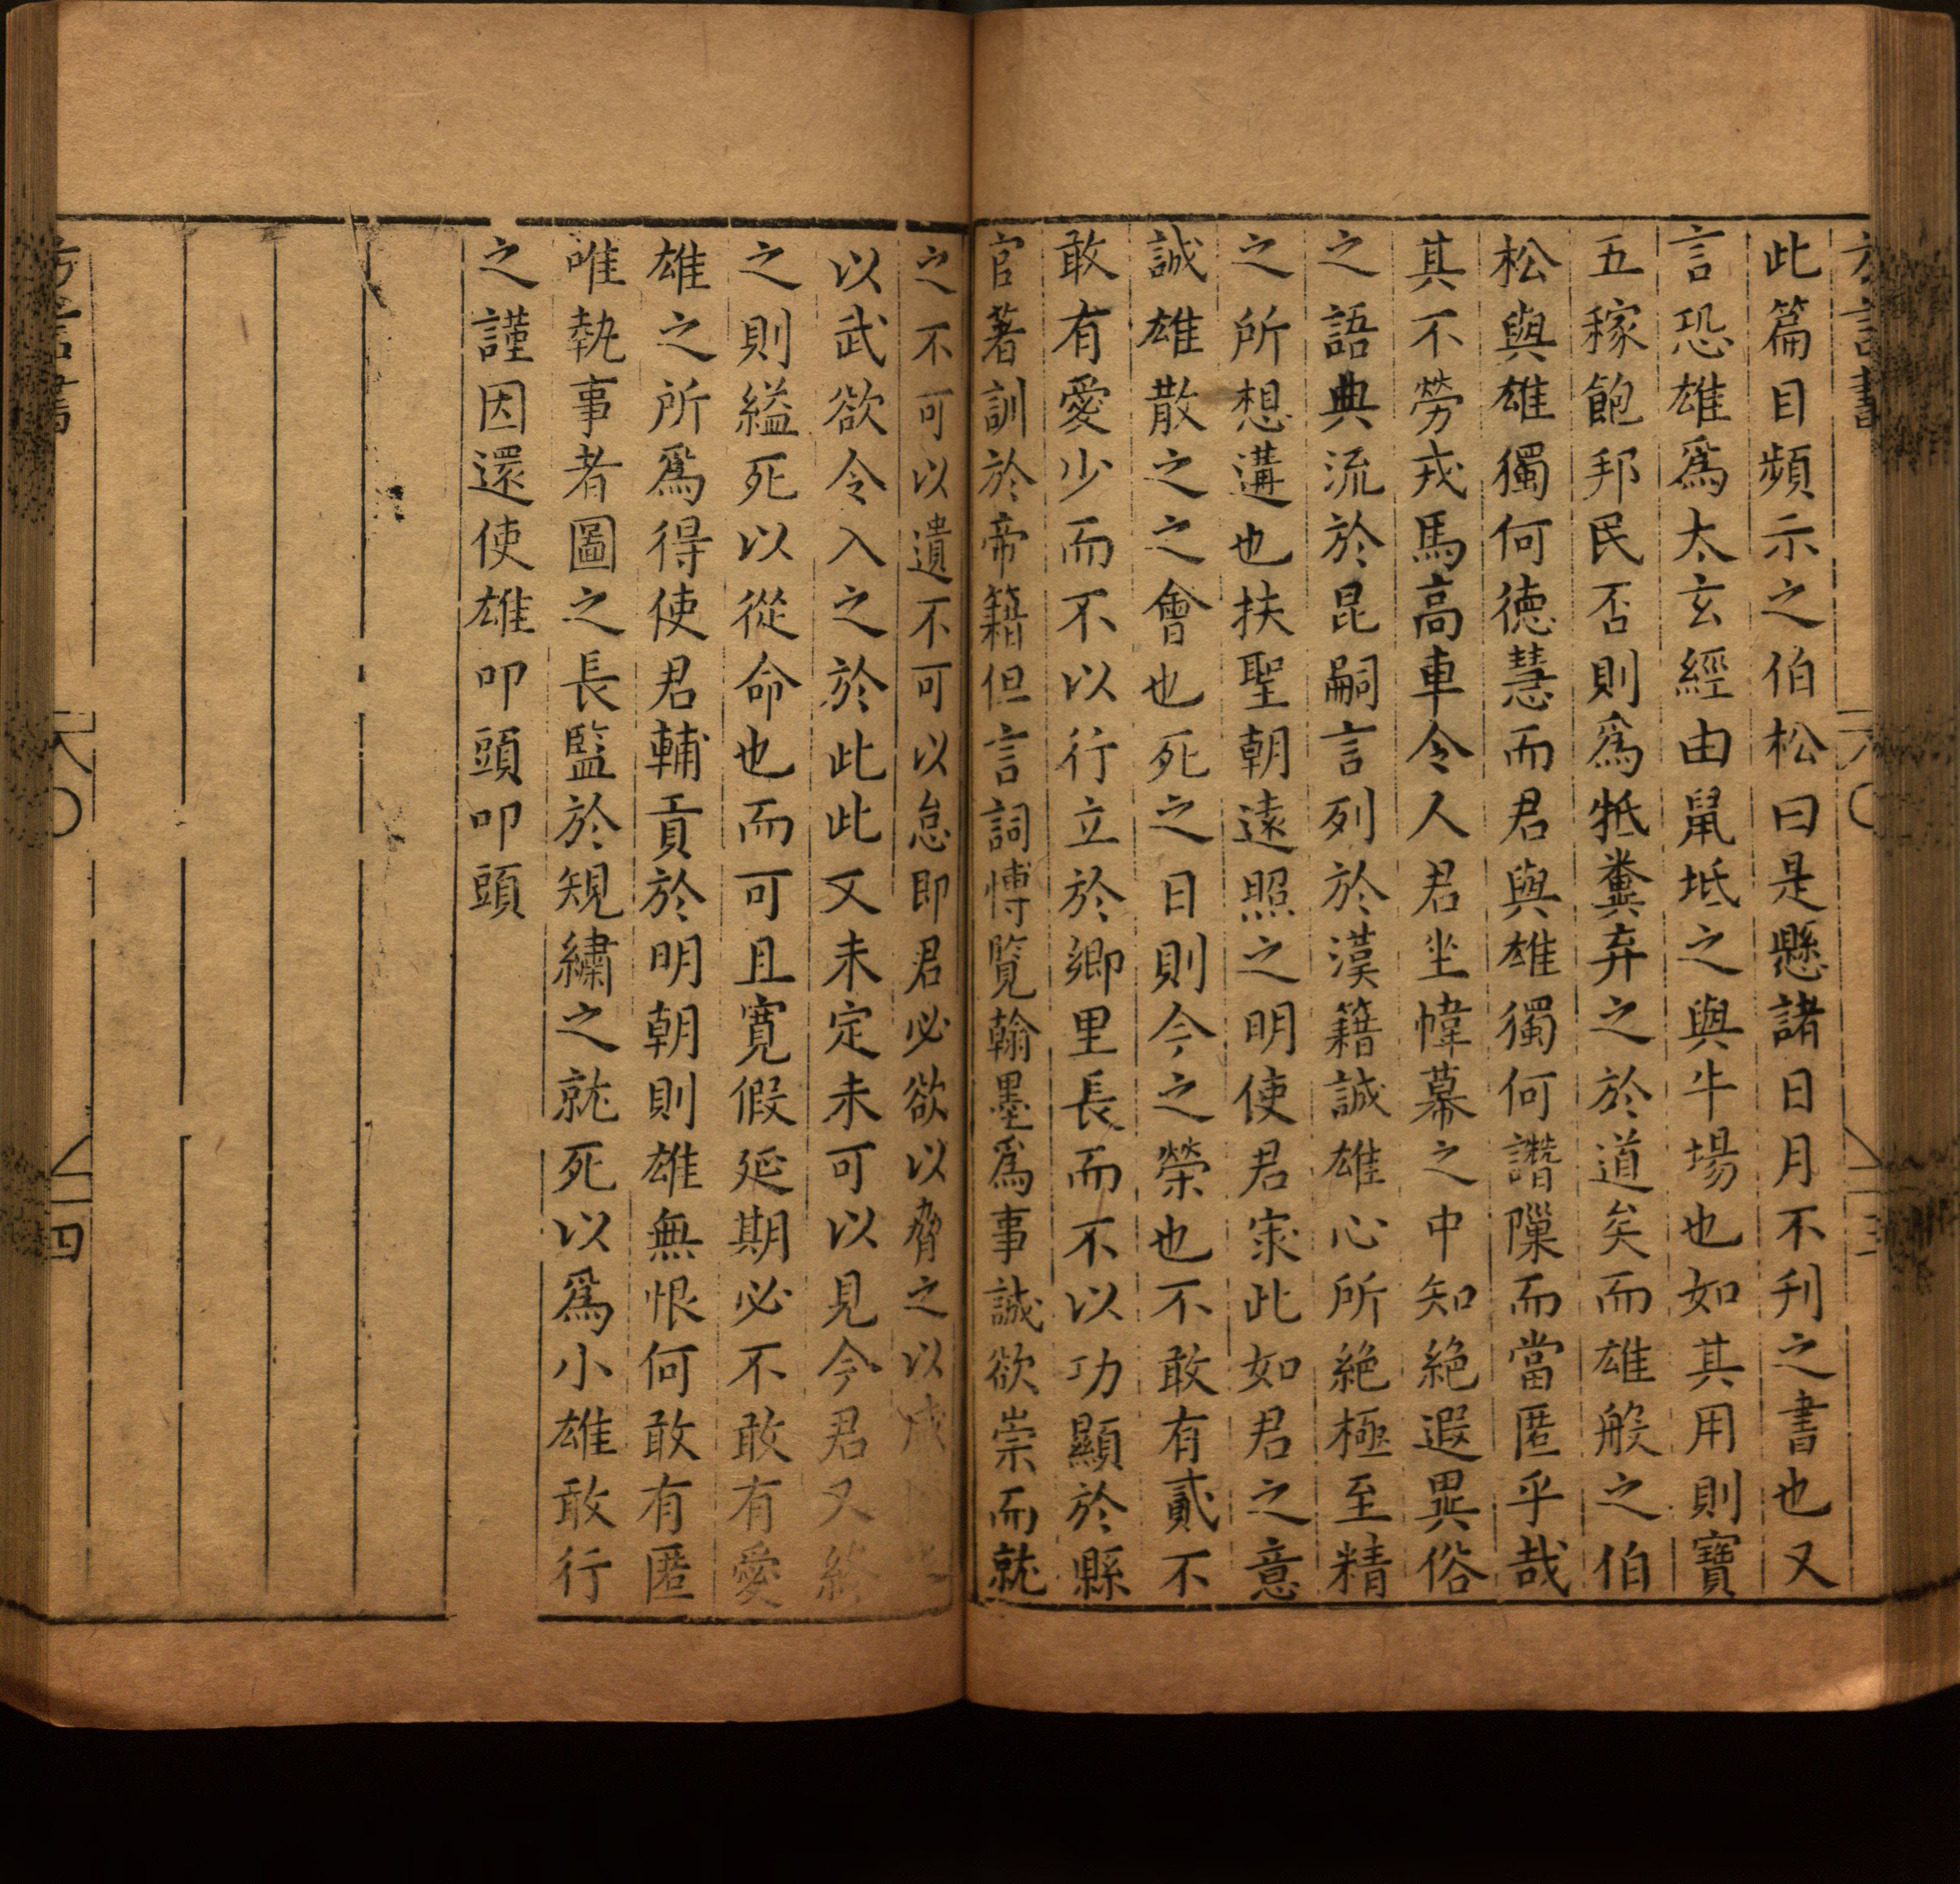 此篇目頻示之伯松曰是懸諸日月不刋之書也又
言恐雄爲太玄經由鼠坻之與牛場也如其用則實
五稼飽邦民否則爲牴糞弃之於道矣而雄般之伯
松與雄獨何德慧而君與雄獨何譖隟而當匿乎哉
其不勞戎馬高車令人君坐幃幕之中知絶遐異俗
之語典流於昆嗣言列於漢籍誠雄心所絶極至精
之所想遘也扶聖朝遠照之明使君㝎此如君之意
誠雄散之之會也死之日則今之榮也不敢有貳不
敢有愛少而不以行立於鄉里長而不以功顯於縣
官著訓於帝籍但言詞愽覧翰墨爲事誠欲崇而就
之不可以遺不可以怠即君必欲以脅之以
以武欲令入之於此此又未定未可以見今君又終
之則縊死以從命也而可且寛假延期必不敢有愛
雄之所爲得使君輔貢於明朝則雄無恨何敢有匿
唯執事者圖之長監於規繡之就死以爲小雄敢行
之謹因還使雄叩頭叩頭
四